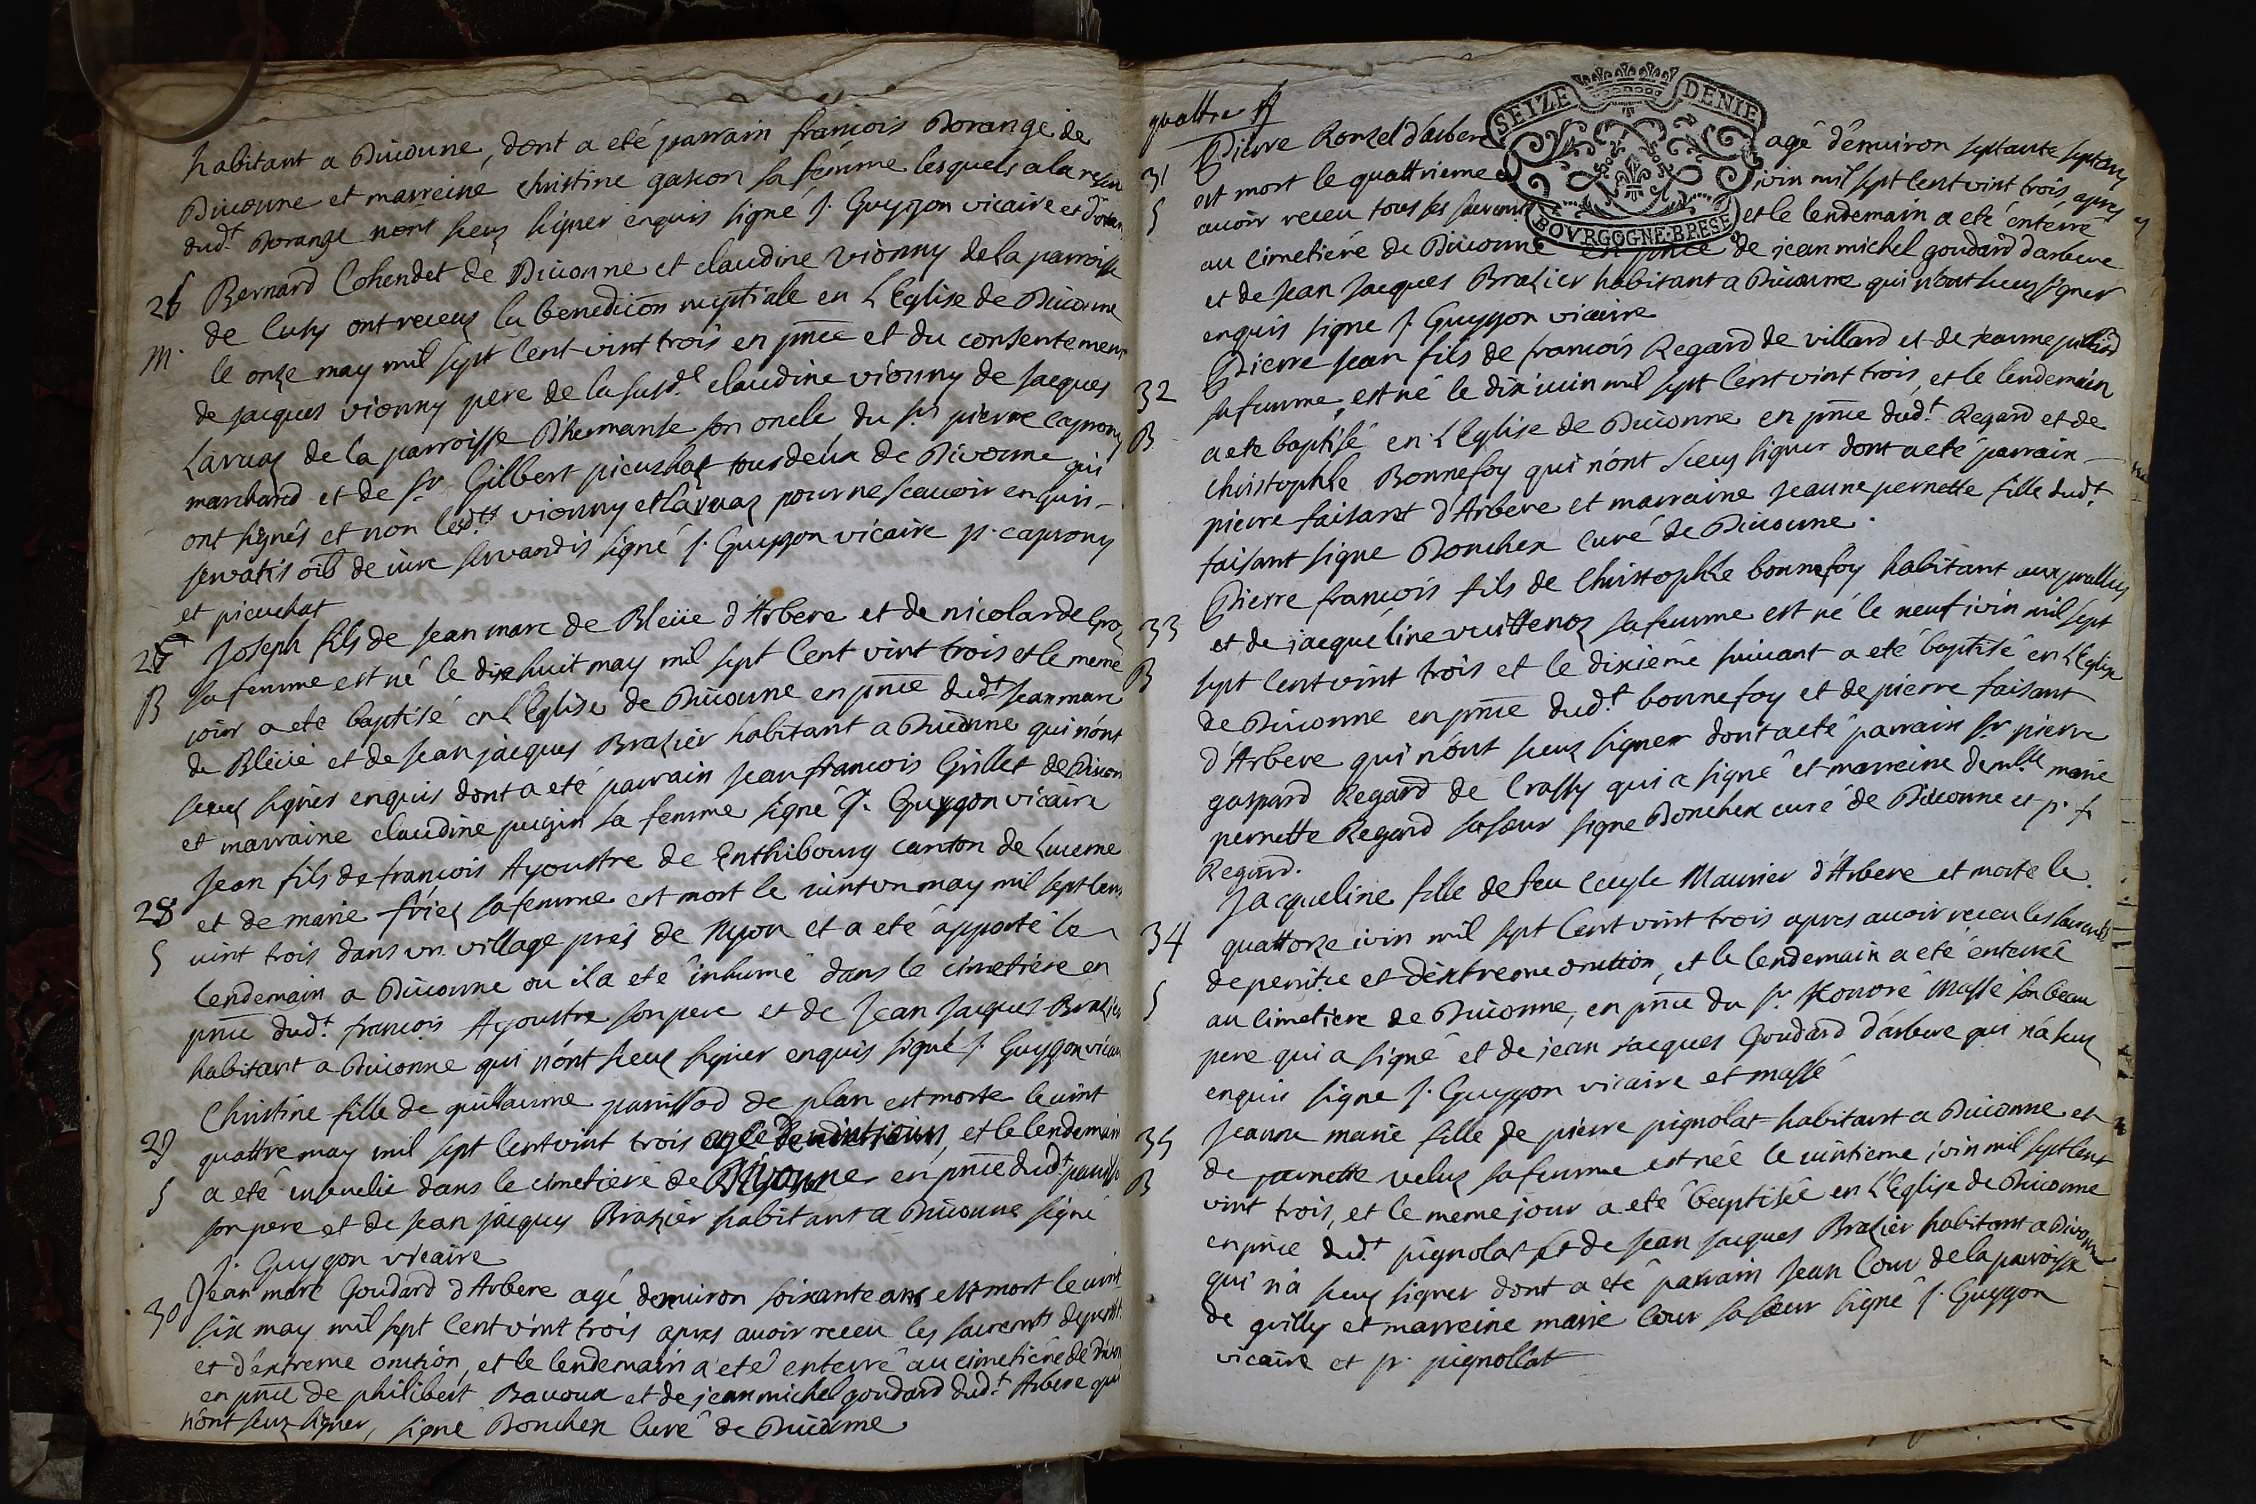 habitant a Diuonne, dont a eté parrain francois Dorange de
Diuonne et marreine christine gascon sa femme lesquels a la
dud.t Dorange n'ont sceuz signer enquis signé J. Guygon vicaire et
26 Bernard Cohendet de Diuonne et claudine vionny de la parroisse
de Cusy ont receuz la benedicõn nuptiale en L'Eglise de Diuonne
M. le onze may mil sept cent vint trois en pñce et du consentement
de jacques vionny pere de la susd.e claudine vionny de jacques
Laruaz de la parroisse D'hermanse son oncle du s.r pierre caprony
marchand et de s.r Gilbert picuchat tous deux de Divonne qui
ont signés et non lesd.tt vionny et laruaz pour ne scauoir enquis
servatis oib de iure servandis signé J. Guygon vicaire p. caprony
et picuchat
27 Joseph fils de Jean marc de Bleüe d'Arbere et de nicolarde Groz
sa femme est né le dix huit may mil sept cent vint trois et le meme
B jour a eté baptisé en L'Eglise de Diuonne en pñce dud.t Jean marc
de Bleüe et de Jean jacques Brazier habitant a Diuonne qui n'ont
sceuz signer enquis dont a eté parrain Jean francois Grillet de Diuon
et marraine claudine pugin sa femme signé J. Guygon vicaire
Jean fils de francois Ayoustre de Enthibourg canton de Lucerne
28 et de marie friez sa femme est mort le vint vn may mil sept cens
S vint trois dans vn village prés de Nyon et a eté apporté le
lendemain a Diuonne ou il a eté inhumé dans le cimetiére en
pñce dud.t francois Ayoustre son pere et de Jean Jacques Brazier
habitant a Diuonne qui n'ont sceuz signer enquis signé J. Guygon vicaire
Christine fille de guillaume panissod de plan est morte le vint
29 quattre may mil sept cent vint trois agée de vint jours, et le lendemain
S a eté enseuelie dans le cimetiere de Divonne en pñce dud.t panisso
son pere et de Jean Jacques Brazier habitant a Diuonne signé
J. Guygon vicaire
30 Jean marc Goudard d'Arbere agé denuiron soixante ans est mort le vint
six may mil sept cent vint trois apres auoir receu les sacremts de penit.
et d'extreme onction, et le lendemain a eté enterré au cimetiére de Diuon
en pñce de philibert Bauoux et de jean michel goudard dud.t Arbere qui
n'ont sceuz signer, signé Donchex Curé de Diuonne
quattre
31 Pierre Rouzel d'arbere agé d'enuiron septante sept ans
est mort le quattrieme ivin mil sept cent vint trois apres
S auoir receu tous ses sacremts et le lendemain a eté enterré
au cimetiére de Diuonne en pñce de jean michel goudard darbere
et de Jean Jacques Brazier habitant a Diuonne qui n'ont sceuz signer
enquis signé J. Guygon vicaire
Pierre Jean fils de francois Regard de villard et de Jeanne
32 sa femme, est né le dix iuin mil sept cent vint trois, et le lendemain
B a eté baptisé en L'Eglise de Diuonne en pñce dud.t Regard et de
christophle Bonnefoy qui n'ont sceuz signer dont a eté parrain
pierre faisant d'Arbere et marraine Jeanne pernette fille dud.t
faisant signé Donchex curé de Diuonne.
33 Pierre francois fils de Christophle bonnefoy habitant
et de jacqueline vuittenoz sa femme est né le neuf ivin mil sept
B sept cent vint trois et le dixiéme suiuant a eté baptisé en L'Eglise
de Diuonne en pñce dud.t bonnefoy et de pierre faisant
d'Arbere qui n'ont sceuz signer dont a eté parrain s.r pierre
gaspard Regard de Crassy qui a signé et marreine dem.lle marie
pernette Regard sa sœur signé Donchex curé de Diuonne et p. f.
Regard.
Jacqueline fille de feu Maurier d'Arbere et morte le
34 quattorze ivin mil sept cent vint trois apres auoir receu les sacremts
de penitce et d'extreme onction, et le lendemain a eté enterrée
S au cimetiere de Diuonne, en pñce du s.r Honoré Massé son beau
pere qui a signé et de jean Jacques Goudard d'arbere qui n'a sceuz
enquis signé J. Guygon vicaire et massé
35 Jeanne marie fille de pierre pignolat habitant a Diuonne et
de pernette veluz sa femme est née le vintieme ivin mil sept cent
B vint trois, et le meme jour a eté baptisée en L'Eglise de Diuonne
en pñce dud.t pignolat et de Jean Jacques Brazier habitant a Divonne
qui n'a sceuz signer dont a eté parrain Jean Cour de la parroisse
de grilly et marreine marie Cour sa sœur signé J. Guygon
vicaire et p. pignollat
SEIZE DENIE
BOVRGOGNE·BRESSE